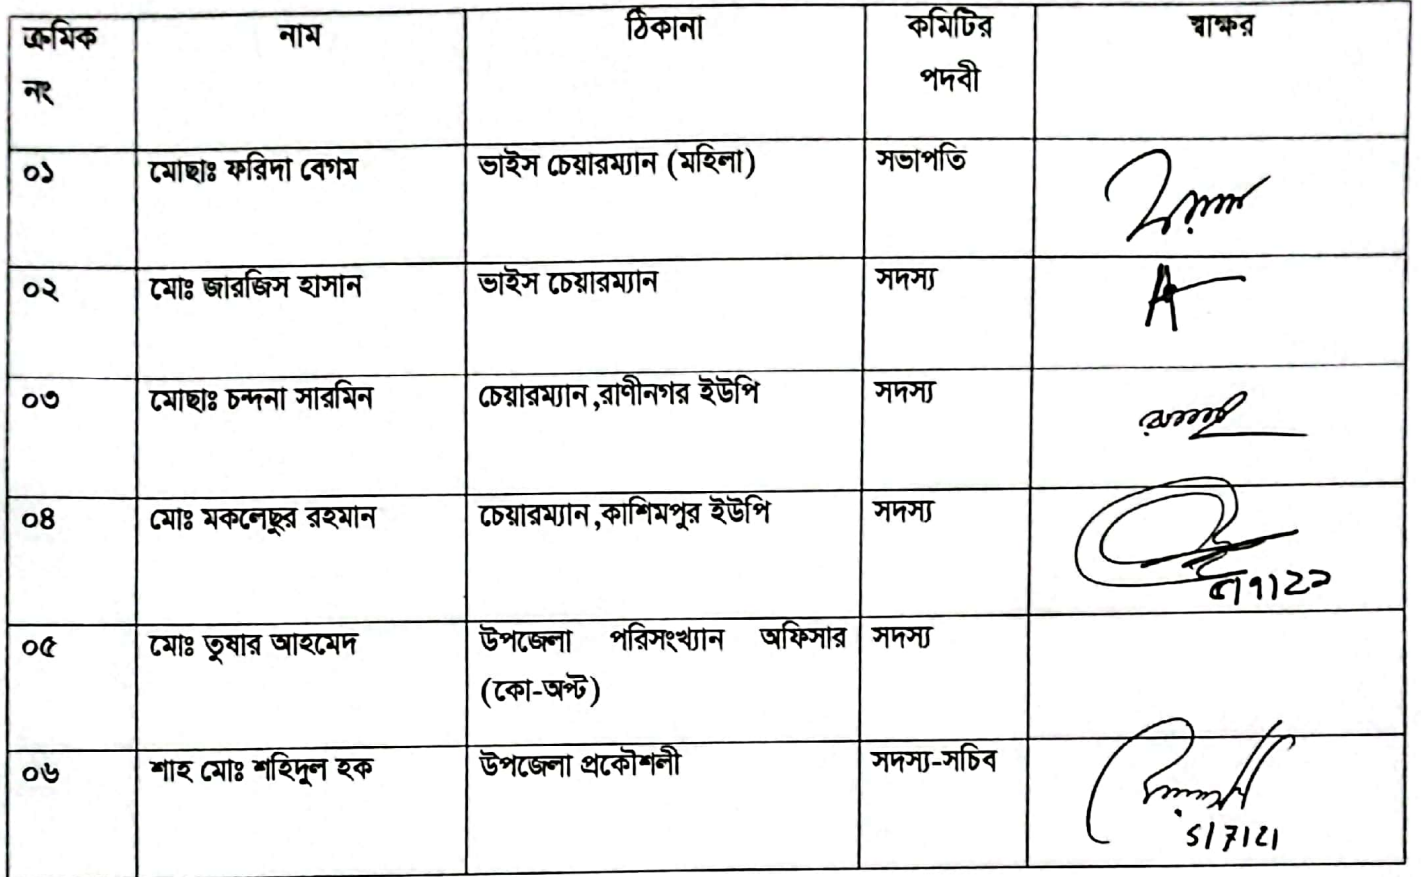 ক্রমিক নং নাম ঠিকানা কমিটির পদবী স্বাক্ষর
০১ মোছাঃ ফরিদা বেগম ভাইস চেয়ারম্যান (মহিলা) সভাপতি
০২ মোঃ জারজিস হাসান ভাইস চেয়ারম্যান সদস্য
০৩ মোছাঃ চন্দনা সারমিন চেয়ারম্যান,রাণীনগর ইউপি সদস্য
০৪ মোঃ মকলেছুর রহমান চেয়ারম্যান,কাশিমপুর ইউপি সদস্য
০৫ মোঃ তুষার আহমেদ উপজেলা পরিসংখ্যান অফিসার সদস্য
(কো-অপ্ট)
০৬ শাহ মোঃ শহিদুল হক উপজেলা প্রকৌশলী সদস্য-সচিব
5/7/21